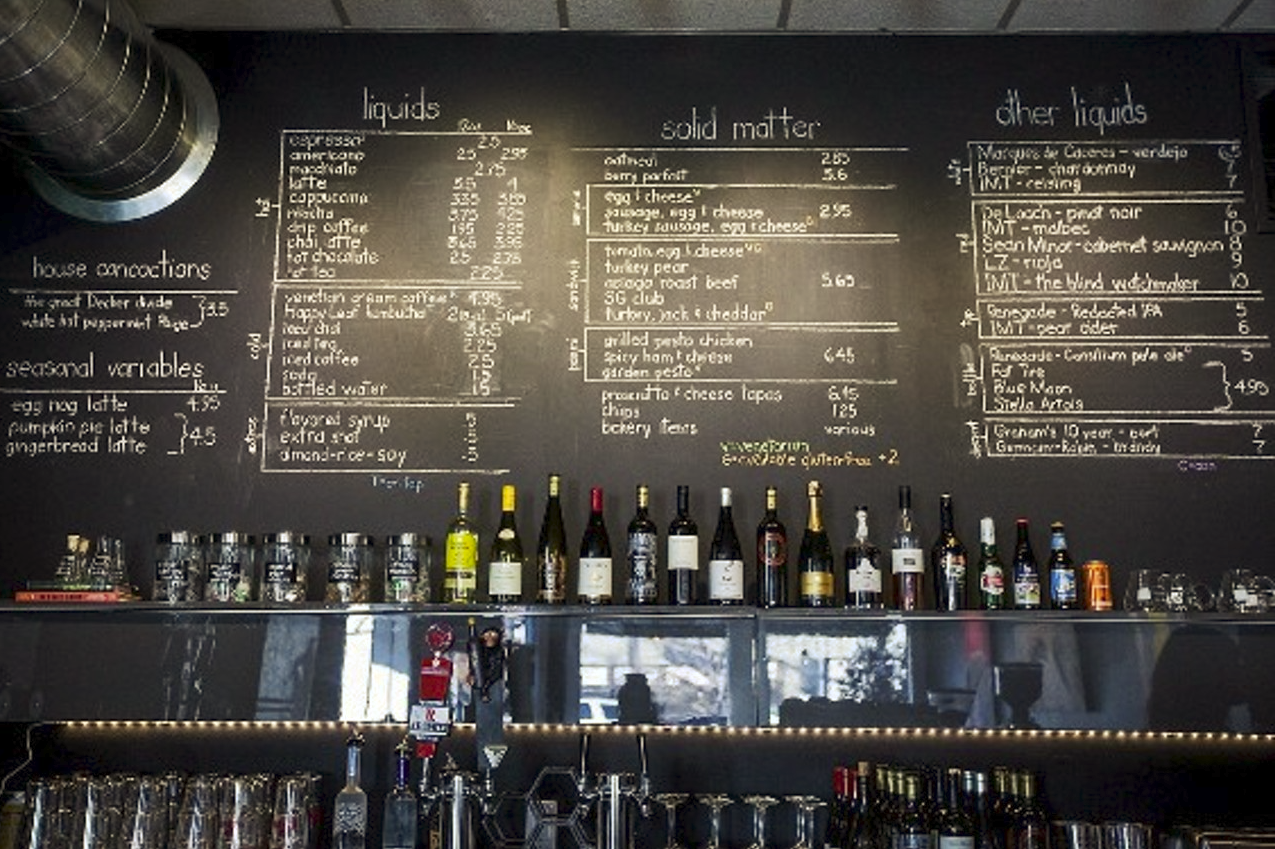 house concoctions
the great Decker divide
white hot peppermint
3.5
seasonal variables
egg nog latte 4.95
pumpkin pie latte
gingerbread latte
4.5
liquids
hot
espresso 2.5
americano 2.5 2.95
macchiato 2.75
latte 3.5 4
cappuccino
mocha 3.75 4.25
drip coffee 1.95 2.25
chai latte 3.65 3.95
hot chocolate 2.5 2.75
hot tea 2.25
cold
venetian cream coffee 4.95
Happy Leaf kombucha
iced chai 3.65
iced tea
iced coffee
soda
bottled water 1.5
flavored syrup .5
extra shot
almond-rice-soy
solid matter
oatmeal 2.85
berry parfait 3.6
egg & cheese
sausage, egg & cheese 2.95
turkey sausage, egg & cheese
sandwich
tomato, egg & cheese
turkey pear
asiago roast beef 5.65
SG club
turkey, jack & cheddar
panini
grilled pesto chicken
spicy ham & cheese 6.45
garden pesto
prosciutto & cheese tapas 6.45
chips 1.25
bakery items various
v=vegetarian
G=available gluten-free +2
other liquids
Marques de Caceres - verdejo 6.5
Bernier - chardonnay
IMT - reisling 7
red
De Loach - pinot noir 6
IMT - malbec 10
Sean Minor - cabernet sauvignon 8
LZ - rioja 9
IMT - the blind watchmaker 10
tap
Renegade - Redacted IPA 5
IMT - pear cider 6
Renegade - Consilium pale ale 5
Fat Tire
Blue Moon 4.95
Stella Artois
Graham's 10 year - port 7
Germain-Robin - brandy 7